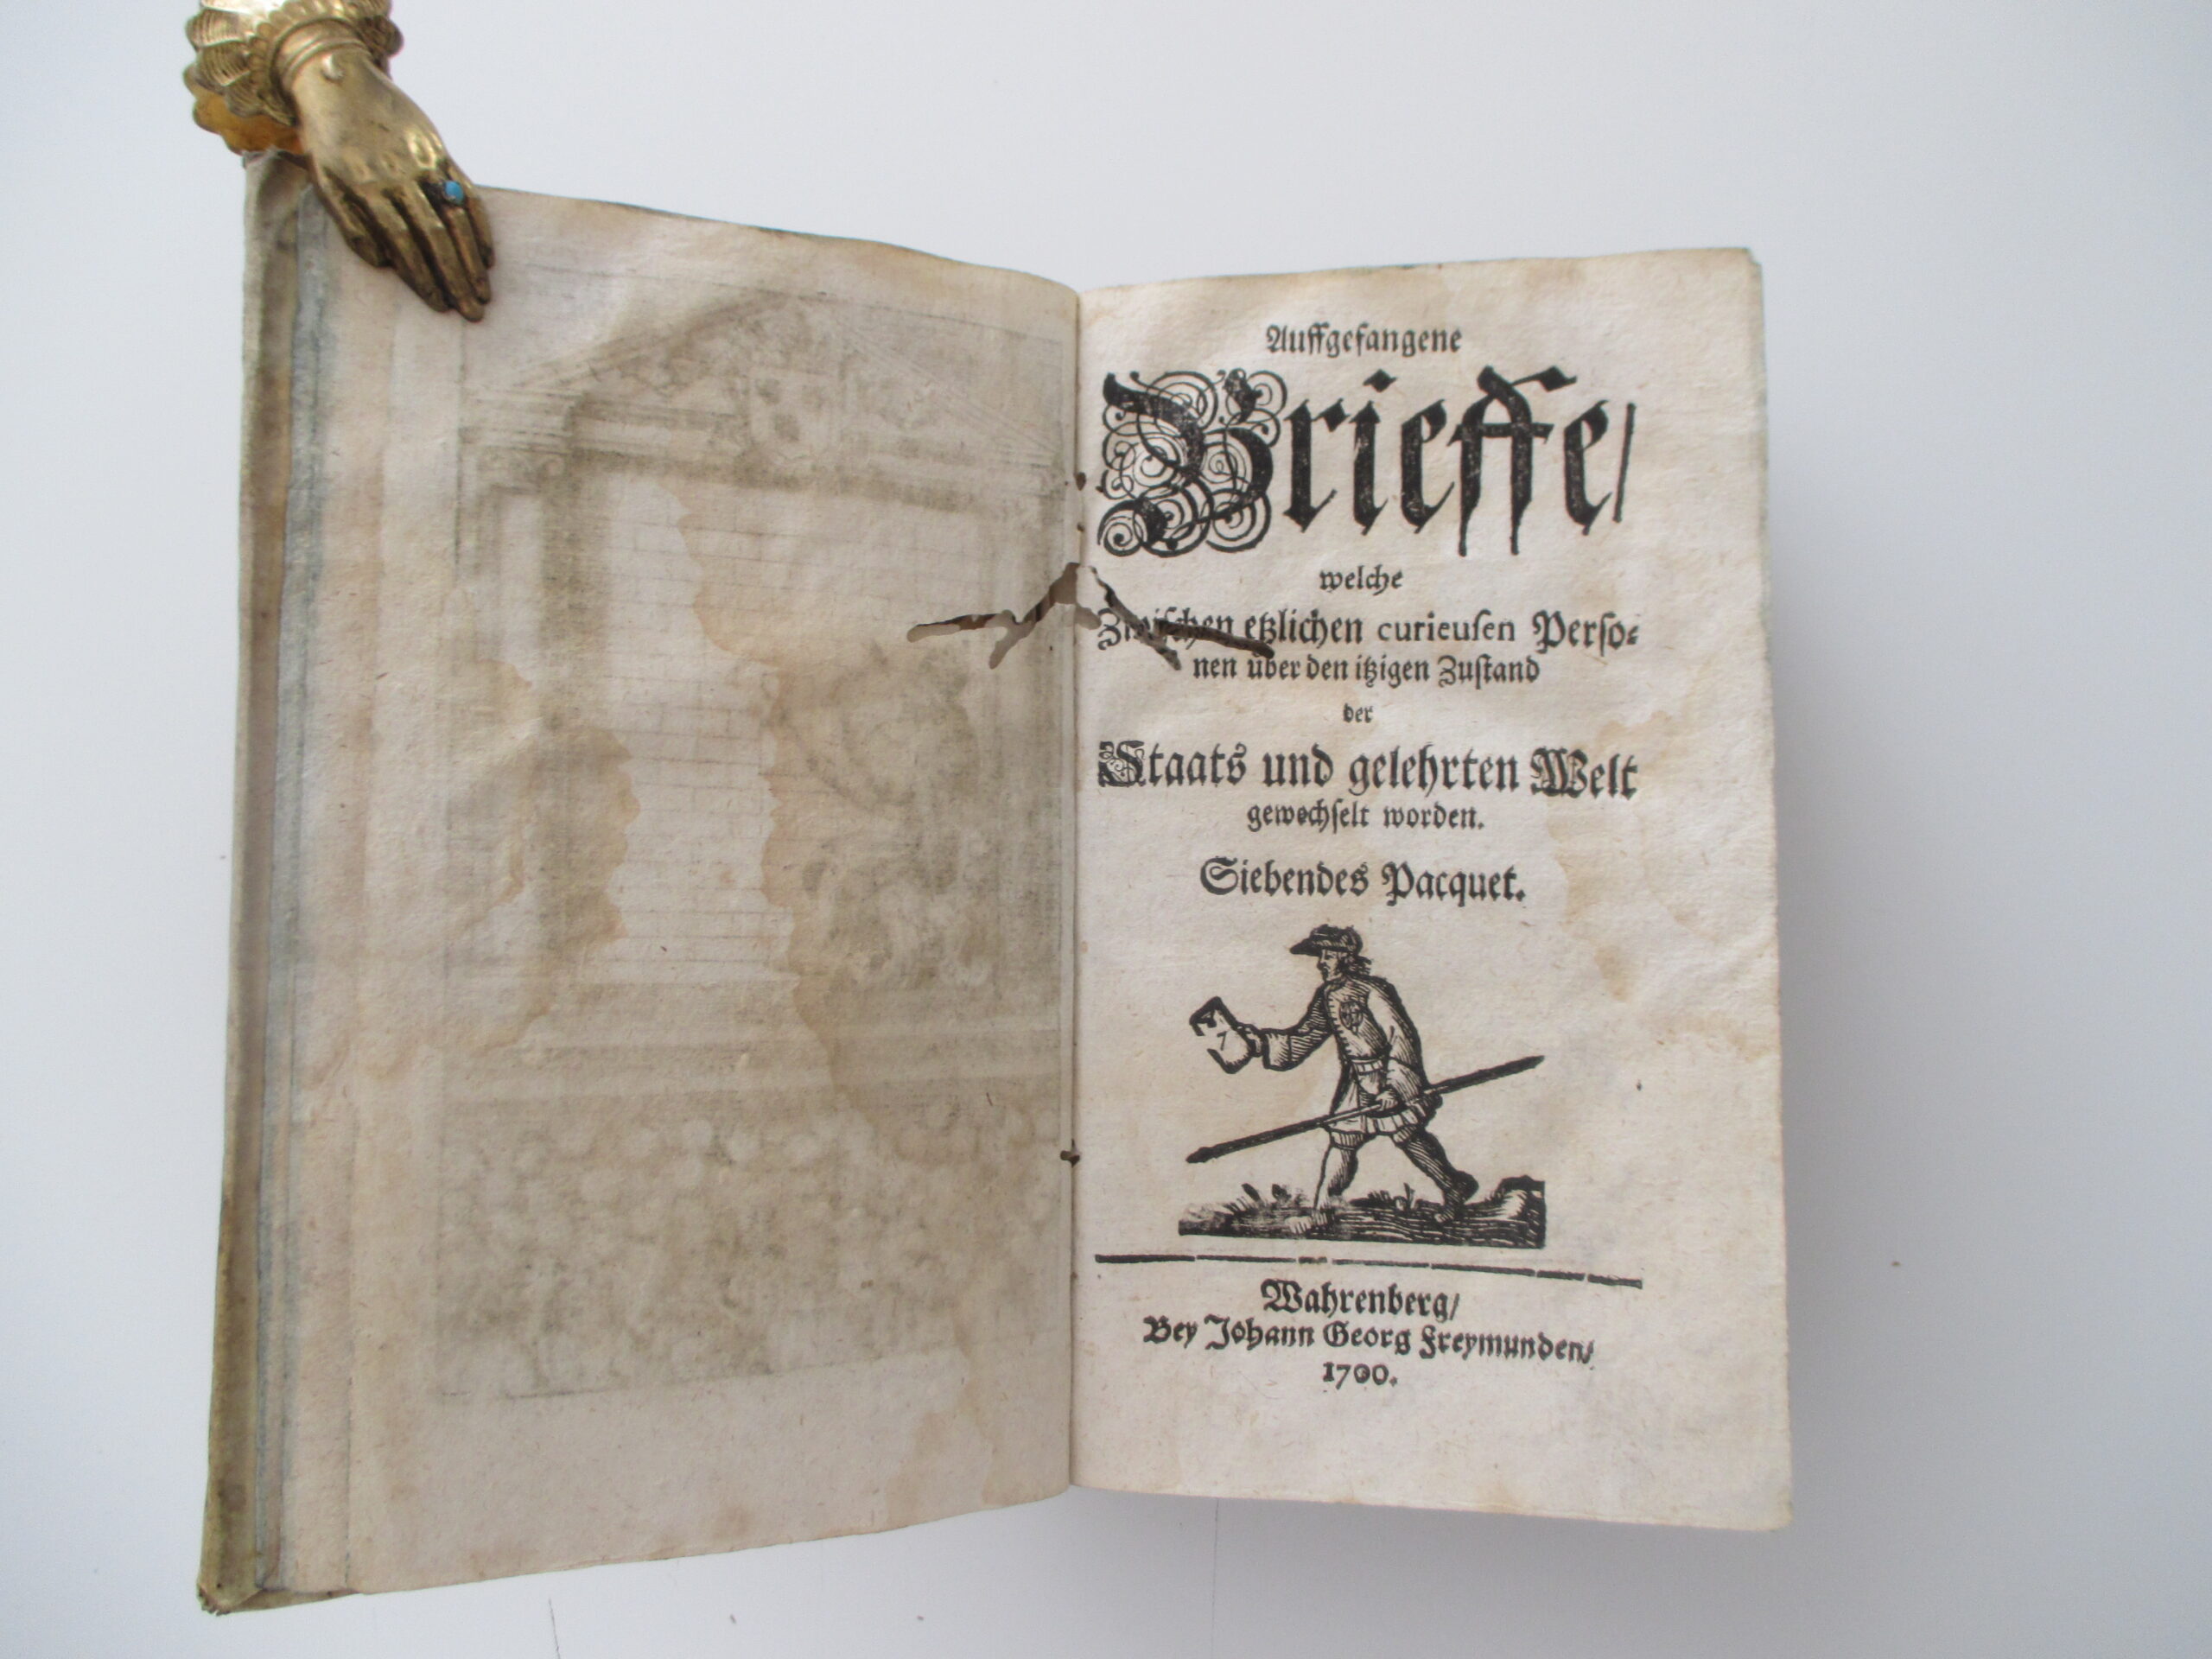 Auffgefangene
Brieffe/
welche
Zwischen etzlichen curieusen Perso-
nen über den itzigen Zustand
der
Staats und gelehrten Welt
gewechselt worden.
Siebendes Pacquet.
7
Wahrenberg/
Bey Johann Georg Freymunden/
1700.